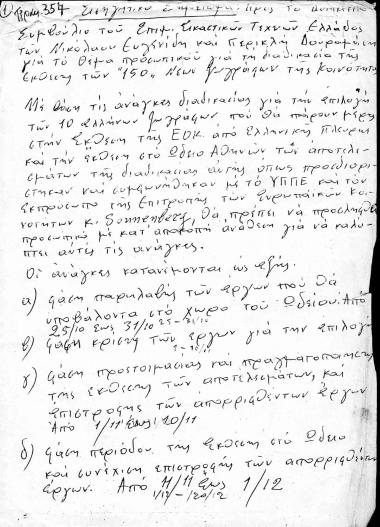 ① 354 Εισηγητικό Σημείωμα προς το Διοικητικό
Συμβούλιο τοῦ Ἐπιμ. Εικαστικῶν Τεχνῶν Ἑλλάδος
τῶν Νικόλαου Εὐγενίδη καί Περικλῆ
γιά τό θέμα προσωπικοῦ γιά τή διαδικασία της
Ἔκθεση τῶν "150" Νέων Ζωγράφων της Κοινότητας
Μέ βάση τίς ἀνάγκες διαδικασίας γιά τήν ἐπιλογή
τῶν 10 Ἑλλήνων ζωγράφων πού θά πάρουν μέρος
στήν Ἔκθεση τῆς ΕΟΚ ἀπό Ἑλληνική Πλευρά
καί τήν ἔκθεση στό Ὠδεῖο Ἀθηνῶν τῶν ἀποτελε-
σμάτων τῆς διαδικασίας αὐτῆς ὅπως προσδιορί-
στηκαν καί συμφωνήθηκαν μέ τό ΥΠΠΕ καί τόν
ἐκπρόσωπο τῆς Ἐπιτροπῆς τῶν Εὐρωπαϊκῶν Κοι-
νοτήτων κ. Sonnenberg, θά πρέπει νά προσληφθεῖ
προσωπικό μέ κατ' ἀποκοπή ἀνάθεση γιά νά καλύ-
πτει αὐτές τίς ἀνάγκες.
Οἱ ἀνάγκες κατανέμονται ὡς ἑξῆς.
α) φάση παραλαβῆς τῶν ἔργων πού θά
ὑποβάλονται στό χῶρο τοῦ Ὠδείου. Ἀπό
25/10 ἕως 31/10 25 - 31/10
β) φάση κρίσης τῶν ἔργων γιά τήν ἐπιλογή
γ) φάση προετοιμασίας καί πραγματοποίησης
τῆς ἔκθεσης τῶν ἀποτελεσμάτων, καί
ἐπιστροφῆς τῶν ἀπορριφθέντων ἔργων
Ἀπό 1/11 ἕως 10/11
δ) φάση περιόδου τῆς ἔκθεσης στό Ὠδεῖο
καί συνέχιση ἐπιστροφῆς τῶν ἀπορριφθέντων
ἔργων. Ἀπό 11/11 ἕως 1/12
1/12 - 20/12